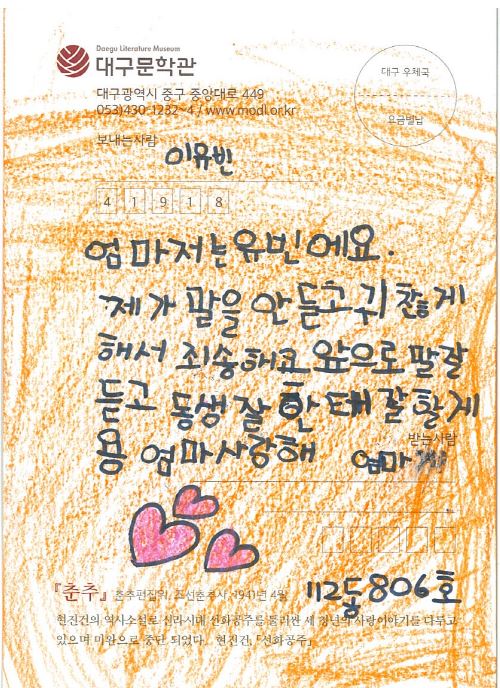 Daegu Literature Museum
대구문학관
대구광역시 중구 중앙대로 449
053)430-1232~4 / www.modl.or.kr
대구 우체국
요금별납
보내는사람
이유빈
4 1 9 1 8
엄마저는유빈에요.
제가 말을 안듣고귀찮게
해서 죄송해요 앞으로말잘
듣고 동생잘한태잘할게
용 엄마사랑해
받는사람
엄마
112동806호
『춘추』 춘추편집위, 조선춘추사, 1941년 4월
현진건의 역사소설로 신라시대 선화공주를 둘러싼 세 청년의 사랑이야기를 다루고
있으며 미완으로 중단 되었다. 현진건, 「선화공주」